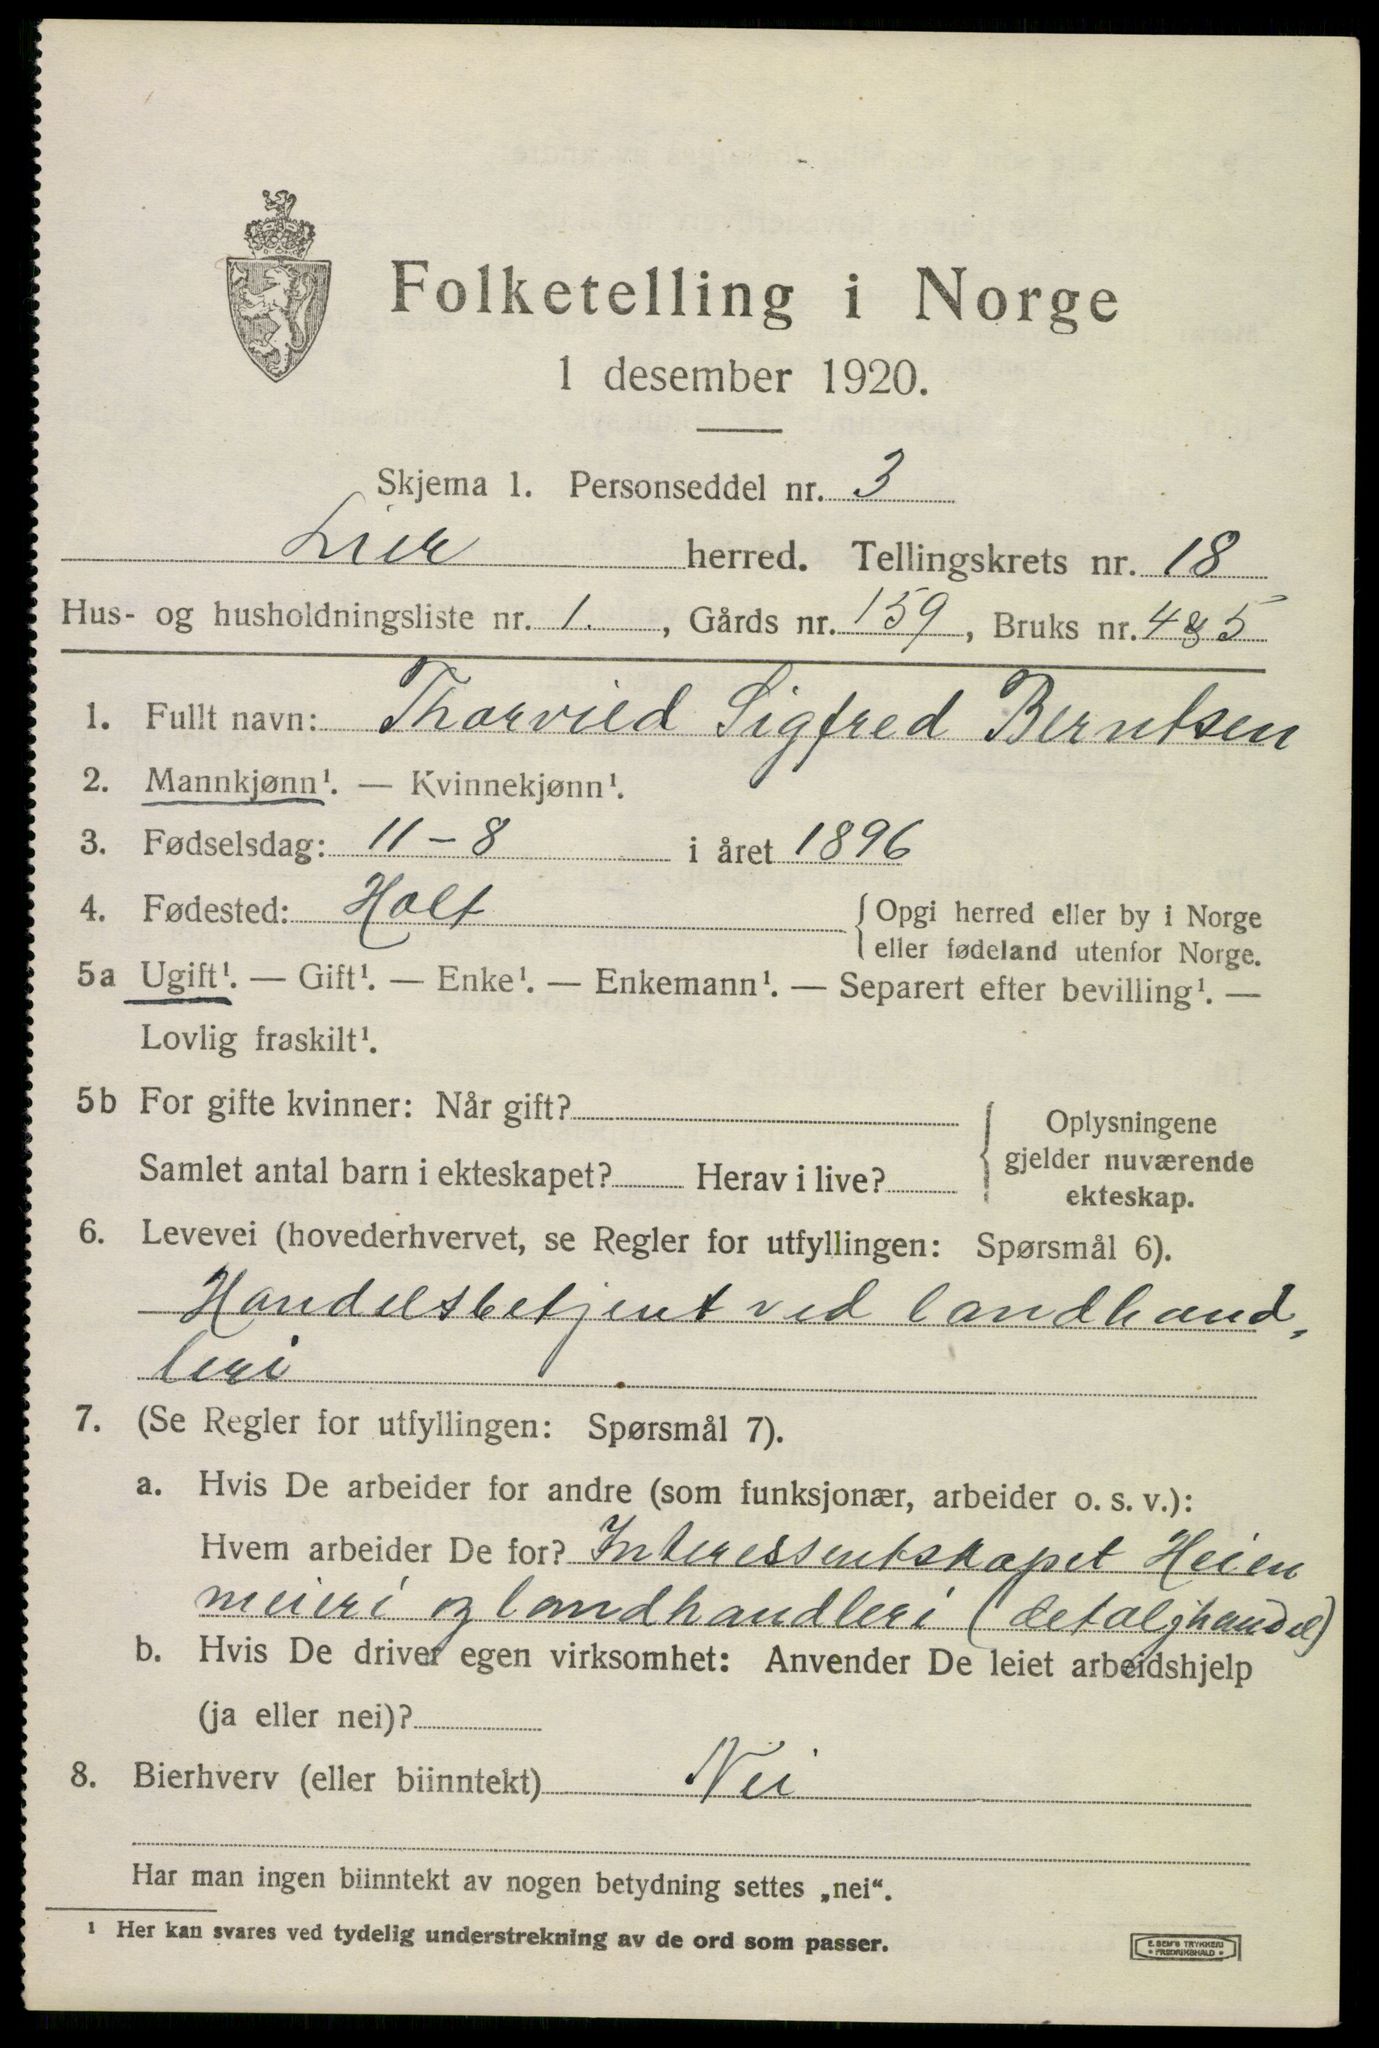 Folketelling i Norge
1 desember 1920.
Skjema 1. Personseddel nr. 3
Lier herred. Tellingskrets nr. 18
Hus- og husholdningsliste nr. 1. , Gårds nr. 159 , Bruks nr. 4 & 5
1. Fullt navn: Thorvild Sigfred Berntsen
2. Mannkjønn¹. — Kvinnekjønn¹.
3. Fødselsdag: 11 - 8 i året 1896
4. Fødested: Holt { Opgi herred eller by i Norge
eller fødeland utenfor Norge.
5a Ugift¹. — Gift¹. — Enke¹. — Enkemann¹. — Separert efter bevilling¹. —
Lovlig fraskilt¹.
5b For gifte kvinner: Når gift?
Samlet antal barn i ekteskapet? Herav i live?
{ Oplysningene
gjelder nuværende
ekteskap.
6. Levevei (hovederhvervet, se Regler for utfyllingen: Spørsmål 6).
Handelsbetjent ved landhand-
leri
7. (Se Regler for utfyllingen: Spørsmål 7).
a. Hvis De arbeider for andre (som funksjonær, arbeider o. s. v.):
Hvem arbeider De for? Interessentskapet Heien
meieri og landhandleri (detaljhandel)
b. Hvis De driver egen virksomhet: Anvender De leiet arbeidshjelp
(ja eller nei)?
8. Bierhverv (eller biinntekt) Nei
Har man ingen biinntekt av nogen betydning settes „nei“.
¹ Her kan svares ved tydelig understrekning av de ord som passer.
E. SEM'S TRYKKERI
• FREDRIKSHALD •